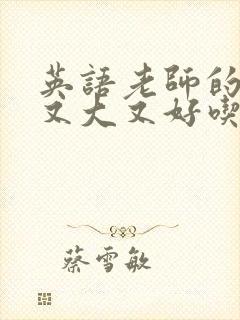 英語老師的
又大又好喫
蔡雪敏